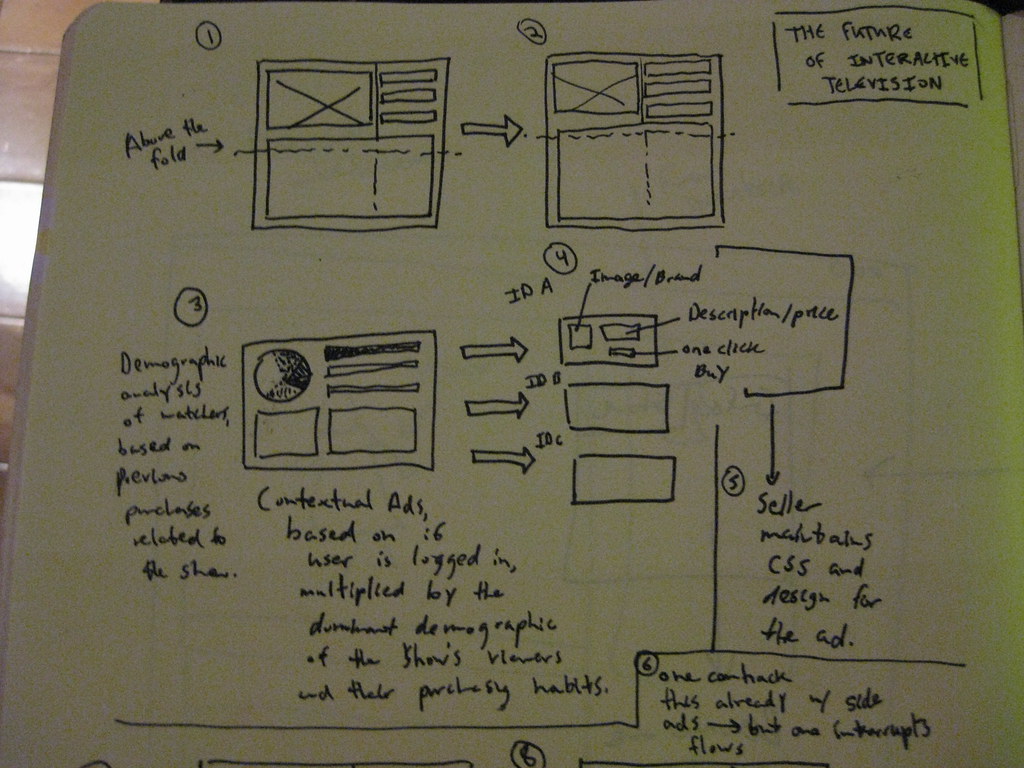 THE FUTURE
OF INTERACTIVE
TELEVISION
1
2
Above the
fold
3
Demographic
analysis
of watchers,
based on
previous
purchases
related to
the show.
Contextual Ads,
based on if
user is logged in,
multiplied by the
dominant demographic
of the show's viewers
and their purchasing habits.
4
ID A
Image/Brand
Description/price
one click
Buy
ID B
ID C
5
Seller
maintains
CSS and
design for
the ad.
6
one can hack
this already w/ side
ads → but one interrupts
flows
8